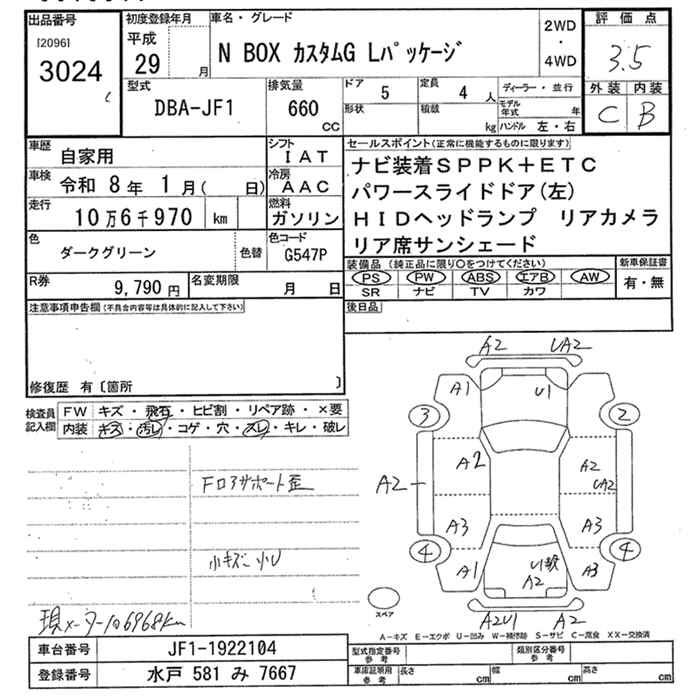 出品番号
[2096]
3024
初度登録年月
平成
29 月
車名・グレード
N BOX カスタムG Lパッケージ
2WD
・
4WD
評価点
3.5
外装 内装
C B
型式
DBA-JF1
排気量
660
CC
ドア
5
形状
定員
4 人
積載
kg
ディーラー・並行
モデル年式 年
ハンドル 左・右
車歴
自家用
シフト
IAT
車検
令和 8年 1月( 日)
冷房
AAC
走行
10万6千970 km
燃料
ガソリン
色
ダークグリーン
色替
色コード
G547P
R券
9,790 円
名変期限
月 日
セールスポイント(正常に機能するものに限ります)
ナビ装着SPPK+ETC
パワースライドドア(左)
HIDヘッドランプ リアカメラ
リア席サンシェード
装備品(純正品に限り〇をつけてください)
PS PW ABS エアB AW
SR ナビ TV カワ
新車保証書
有・無
後日品
注意事項申告欄(不具合内容等は具体的に記入して下さい)
修復歴 有〔箇所 〕
検査員
記入欄
FW キズ・飛石・ヒビ割・リペア跡・×要
内装 キズ・汚レ・コゲ・穴・スレ・キレ・破レ
Fロアサポート歪
小キズ 小U
現メーター106968km
A2 UA2
A1 U1
3 2
A2 A2
A2 UA2
A3 A3
4 4
A1 A2 A3
スペア
A2U1 A2
A-キズ E-エクボ U-凹み W-補修跡 S-サビ C-腐食 XX-交換済
車台番号
JF1-1922104
登録番号
水戸 581 み 7667
型式指定番号
参考
類別区分番号
参考
車庫証明用
参考
長さ cm
幅 cm
高さ cm